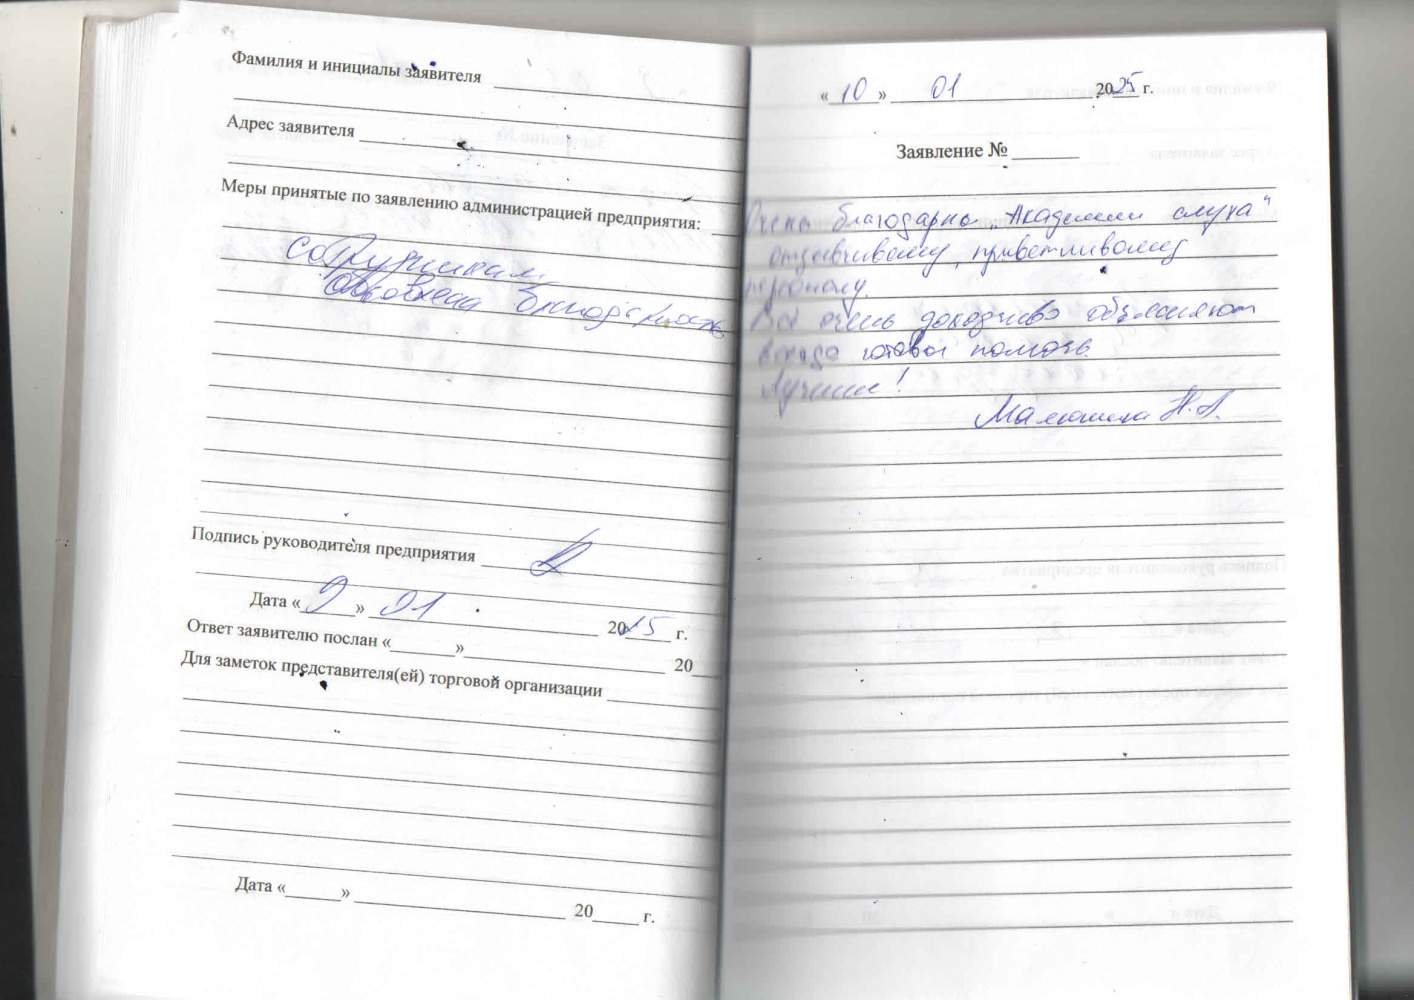 Фамилия и инициалы заявителя
Адрес заявителя
Меры принятые по заявлению администрацией предприятия:
Сотрудникам
объявлена благодарность
Подпись руководителя предприятия
Дата «9» 01 2025 г.
Ответ заявителю послан «______» 20
Для заметок представителя(ей) торговой организации
Дата «______» 20____ г.
«10» 01 2025 г.
Заявление №
Очень благодарна „Академии слуха"
отзывчивому, приветливому
персоналу.
Всё очень доходчиво объясняют
всегда готовы помочь.
Лучшие!
Малюшина Н.А.